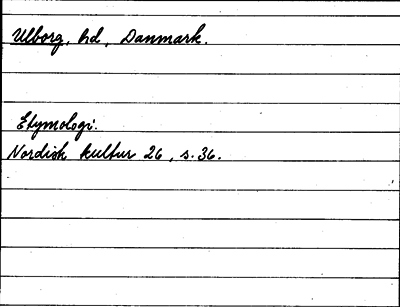 Ulborg, hd, Danmark.
Etymologi.
Nordisk kultur 26, s. 36.